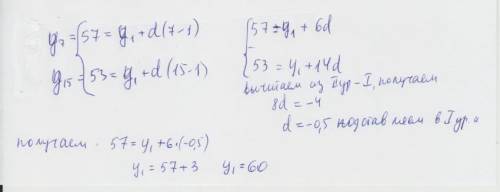 y₇ = { 57 = y₁ + d(7-1)
y₁₅ = { 53 = y₁ + d(15-1)
{ 57 = y₁ + 6d
{ 53 = y₁ + 14d
вычитаем из II ур - I, получаем
8d = -4
d = -0,5 подставляем в I ур.
получаем. 57 = y₁ + 6·(-0,5)
y₁ = 57 + 3 y₁ = 60